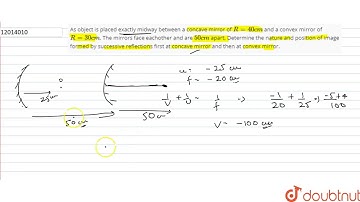 12014010
As object is placed exactly midway between a concave mirror of R = 40cm and a convex mirror of
R = 30cm. The mirrors face eachother and are 50cm apart. Determine the nature and position of image
formed by successive reflections first at concave mirror and then at convex mirror.
u = - 25 cm
f = - 20 cm
1/v + 1/u = 1/f ⇒ -1/20 + 1/25 ⇒ -5+4/100
v = -100 cm
25cm
50 cm
50 cm
doubtnut